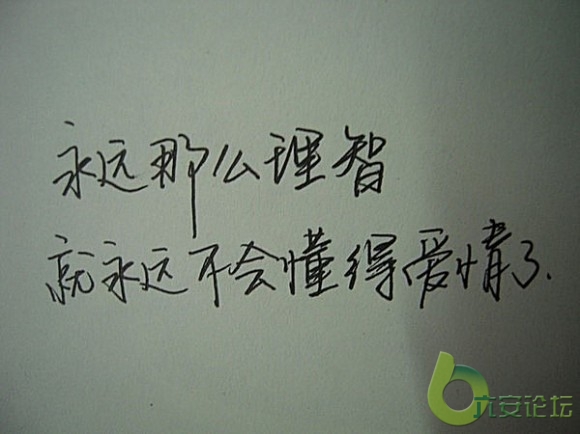 永远那么理智
就永远不会懂得爱情了.
六安论坛